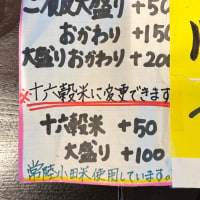 ご飯大盛り +50
おかわり +150
大盛りおかわり +200
※十六穀米に変更できます
十六穀米 +50
大盛り +100
常陸小田米使用しています。